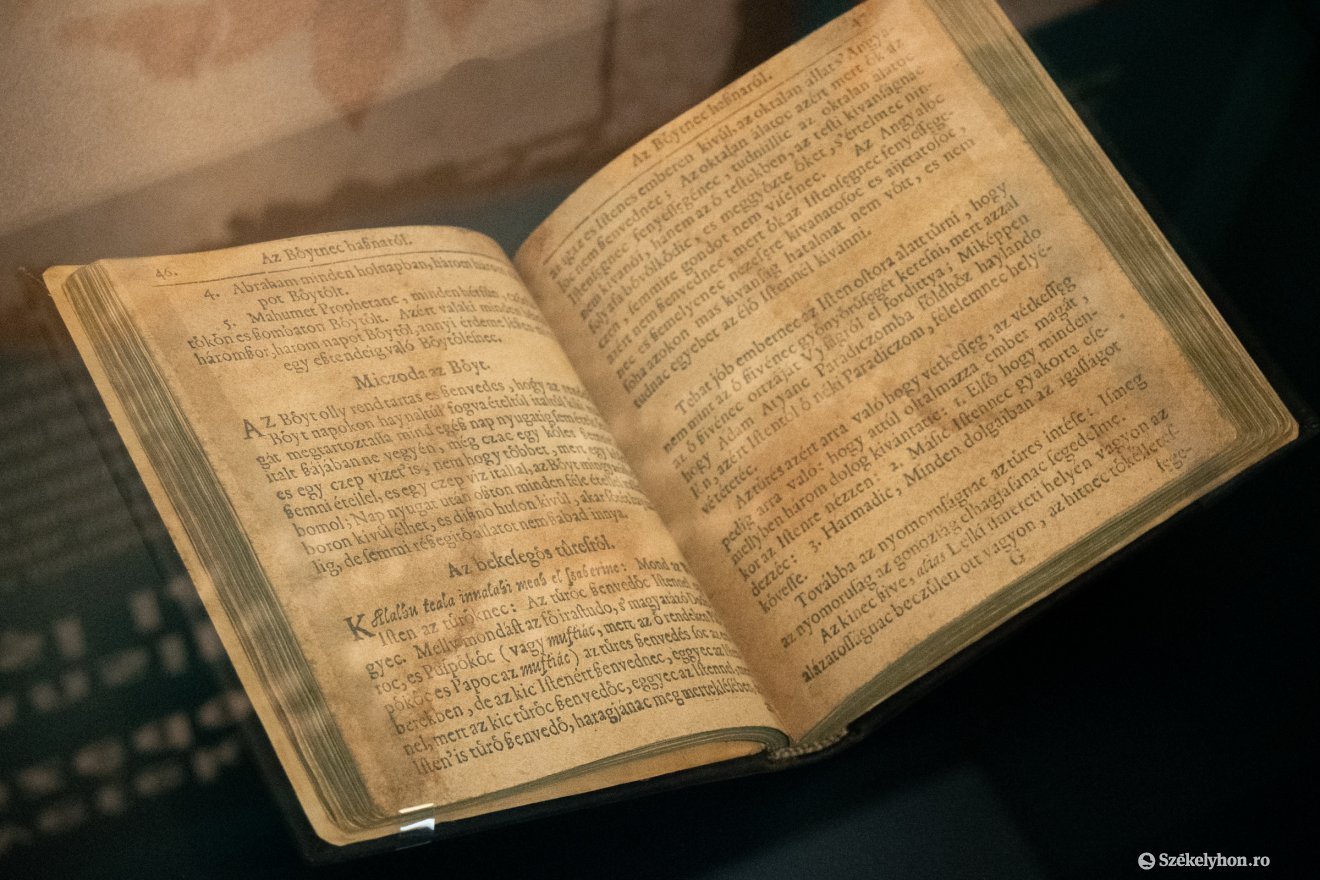 46. Az Bőytnec haßnaról.
4. Abraham minden holnapban, három
pot Bőytőlt.
5. Mahumet Prophetane, minden
tőkőn es ßombaton Bőytőlt. Azért valaki minden
háromßor, három napot Bőytől, annyi érdeme
egy eßtendeig való Bőytőlesnec.
Miczoda az Bőyt.
AZ Bőyt olly rend tartas es ßenvedes, hogy az
Bőyt napokon haynaltúl fogva ételtűl italtúl
gát megtartoztassa mind egéß nap nyugatig
italt ßájában ne vegyén, még czac egy kőles
es egy czep vizet is, nem hogy tőbbet, mert egy
ßemni étellel, es egy czep viz itallal, az Bőyt mingyarast
bomol; Nap nyugat után oston minden féle étellel
boron kivűl élhet, es dißno huson kivűl, akar
lig, de semmi réßegitő állatot nem ßabad innya.
Az bekeleges tűresről.
KAlalbu teala innalabi meab el ssaberine: Mond az
Isten az tűrőknec: Az tűrőc ßenvedőc Istennel
gyec. Melly mondást az fő irastudo, s' magyarázó
roc, es Pűspőkőc (vagy muftiác, mert az ő rendekben
pőkőc es Papoc az muftiác) az tűres ßenvedés
berekben, de az kic Istenért ßenvednec, eggyec az
nel, mert az kic tűrőc ßenvedőc, eggyec az Istennel,
Isten' is tűrő ßenvedő, haragjánac meg mertekléseben
Az Bőytnec haßnaról. 47.
az igaz es Istenes emberen kivűl, az oktalan állat s' Angya-
loc nem ßenvednec; Az oktalan álatoc azért mert őc az
Istenségnec fenyességenec, tudniillic az oktalan álatoc
nem kivanói, hanem az ő testekben, az testi kivanságnac
folyasa bővőlkődic, es meggyőzte őket, s' értelmec nin-
czen, semmire gondot nem viselnec. Az Angyalóc
azért nem ßenvednec, mert őc az Istenségnec fenyessége-
nec, es ßemelyenec nezésere kivanatosoc es aijetatosoc,
soha azokon mas kivanság hatalmat nem vőtt, es nem
tudnac egyebet az élő Istennel kivánni.
Tehat jób embernec az Isten ostora alatt tűrni, hogy
nem mint az ő sivénec győnyőrűségét keresni, mert azzal
az ő sivénec ortzáját Vrától el fordittya; Miképpen
hogy Adám Atyánc Paradiczomba főldhőz haylando
lén, azért Istentől ő néki Paradiczom, félelemnec helyé-
vé tetetéc.
Az tűrés azért arra való hogy vétkesség, az vétkesség
pedig arra való: hogy attúl oltalmazza ember magát,
mellyben három dolog kivántatic: 1. Első hogy minden-
kor az Istenre nézzen: 2. Másic Istennec gyakorta esе-
dezzéc: 3. Harmadic, Minden dolgaiban az igasságot
kővesse.
Továbba az nyomoruságnac az tűres intése: Ismeg
az nyomoruság az gonoßság elhagjasánac segedelme.
Az kinec sive, alzas Lelki ismereti helyén vagyon az
alázatosságnac beczűlen ott vagyon, az hitnec tőkéletes-
G sége-
Székelyhon.ro